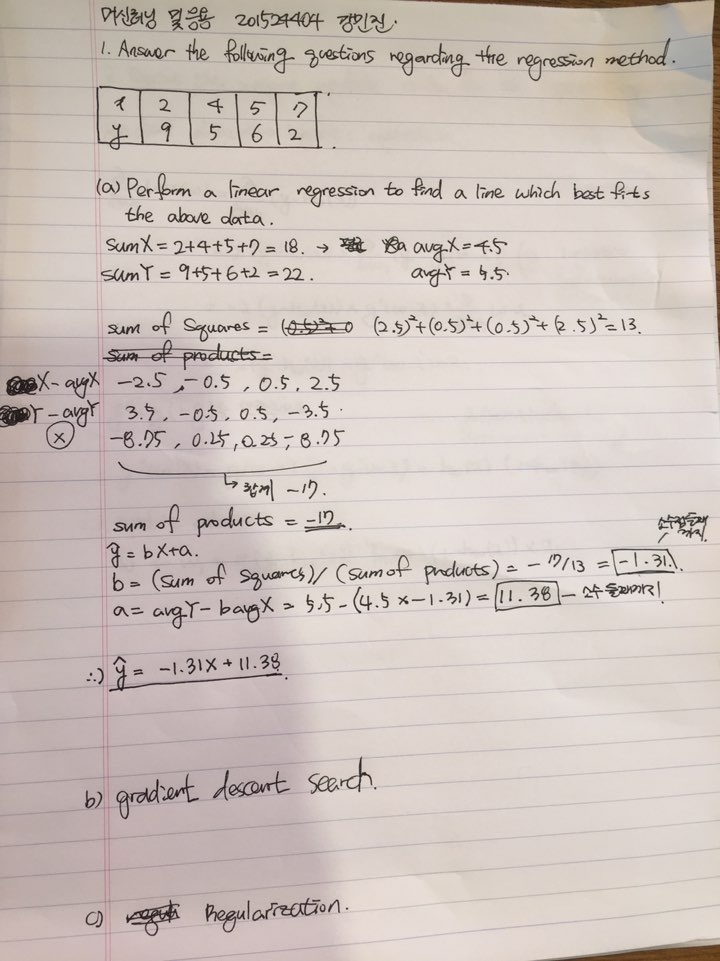 머신러닝 및 응용 201524404 강민진.
1. Answer the following questions regarding the regression method.
x 2 4 5 7
y 9 5 6 2
(a) Perform a linear regression to find a line which best fits
the above data.
sumX = 2+4+5+7 = 18. → avgX = 4.5
sumY = 9+5+6+2 = 22. avgY = 5.5.
sum of Squares = (2.5)²+(0.5)²+(0.5)²+(2.5)²=13.
sum of products =
X - avgX -2.5, -0.5, 0.5, 2.5
Y - avgY 3.5, -0.5, 0.5, -3.5.
ⓧ -8.75, 0.25, 0.25, -8.75
↳ 합계 -17.
sum of products = -17.
ŷ = bX+a.
소수점둘째
까지.
b = (sum of squares)/(sum of products) = -17/13 = -1.31.
a = avgY - bavgX = 5.5 - (4.5 x -1.31) = 11.38 - 소수 둘째까지!
∴) ŷ = -1.31X + 11.38.
b) gradient descent search.
c) Regularization.